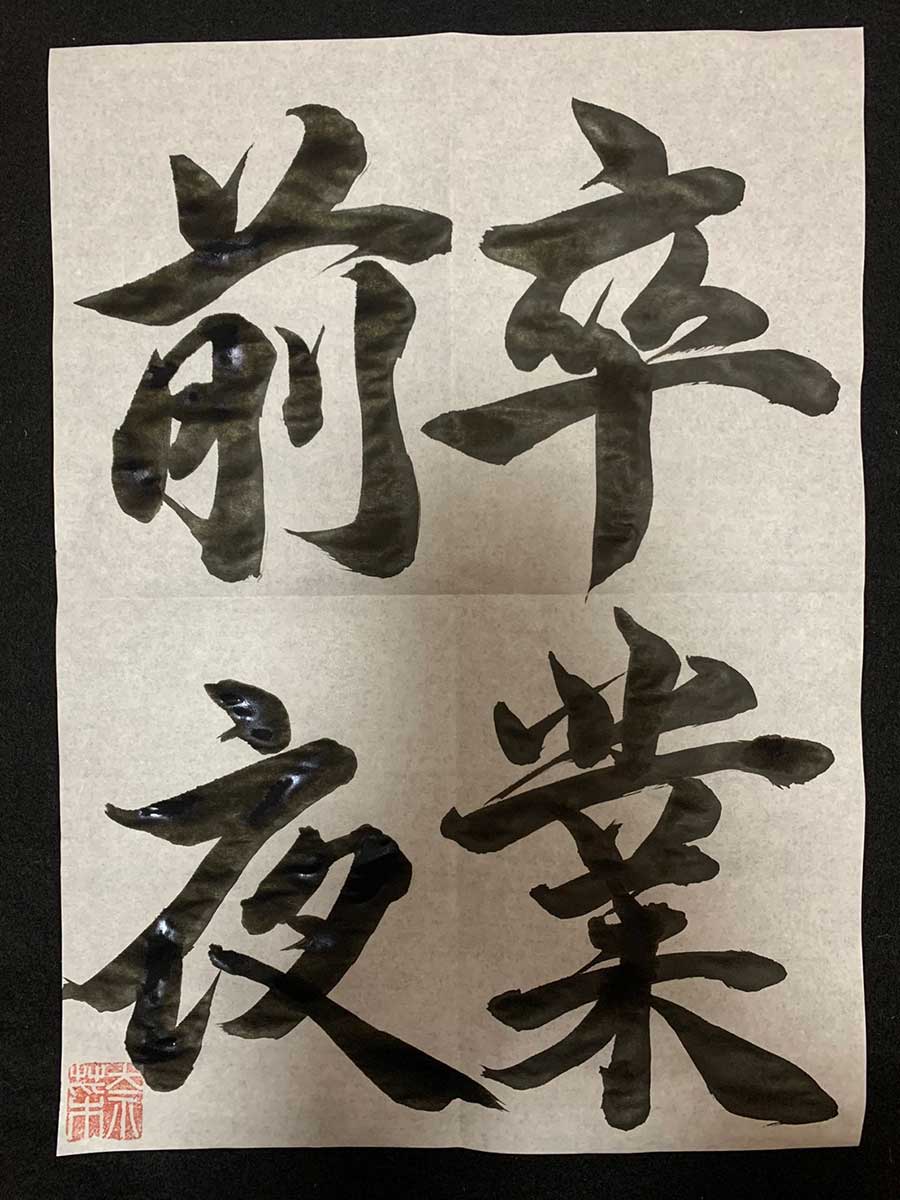 卒業
前夜